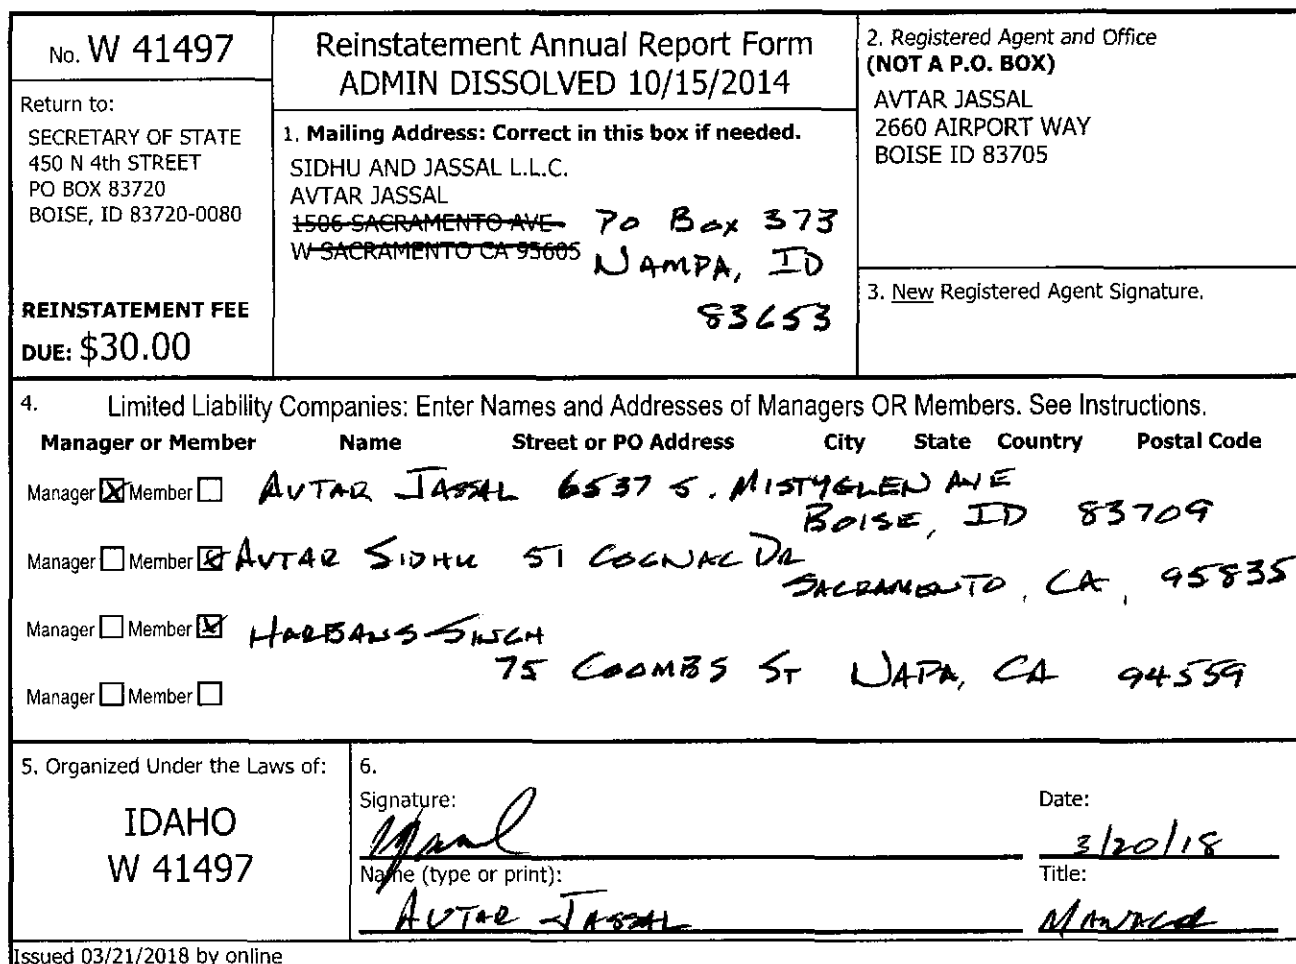 No. W 41497
Return to:
SECRETARY OF STATE
450 N 4th STREET
PO BOX 83720
BOISE, ID 83720-0080
REINSTATEMENT FEE
DUE: $30.00
Reinstatement Annual Report Form
ADMIN DISSOLVED 10/15/2014
1. Mailing Address: Correct in this box if needed.
SIDHU AND JASSAL L.L.C.
AVTAR JASSAL
1506 SACRAMENTO AVE
W SACRAMENTO CA 95605
PO Box 373
NAMPA, ID
83653
2. Registered Agent and Office
(NOT A P.O. BOX)
AVTAR JASSAL
2660 AIRPORT WAY
BOISE ID 83705
3. New Registered Agent Signature.
4. Limited Liability Companies: Enter Names and Addresses of Managers OR Members. See Instructions.
Manager or Member Name Street or PO Address City State Country Postal Code
Manager Member AVTAR JASSAL 6537 S. MISTYGLEN AVE
BOISE, ID 83709
Manager Member AVTAR SIDHU 51 COGNAC DR
SACRAMENTO, CA, 95835
Manager Member HARBANS SINGH
75 COOMBS ST NAPA, CA 94559
Manager Member
5. Organized Under the Laws of:
IDAHO
W 41497
6.
Signature:
Date:
3/20/18
Name (type or print):
Title:
AVTAR JASSAL
MANAGER
Issued 03/21/2018 by online